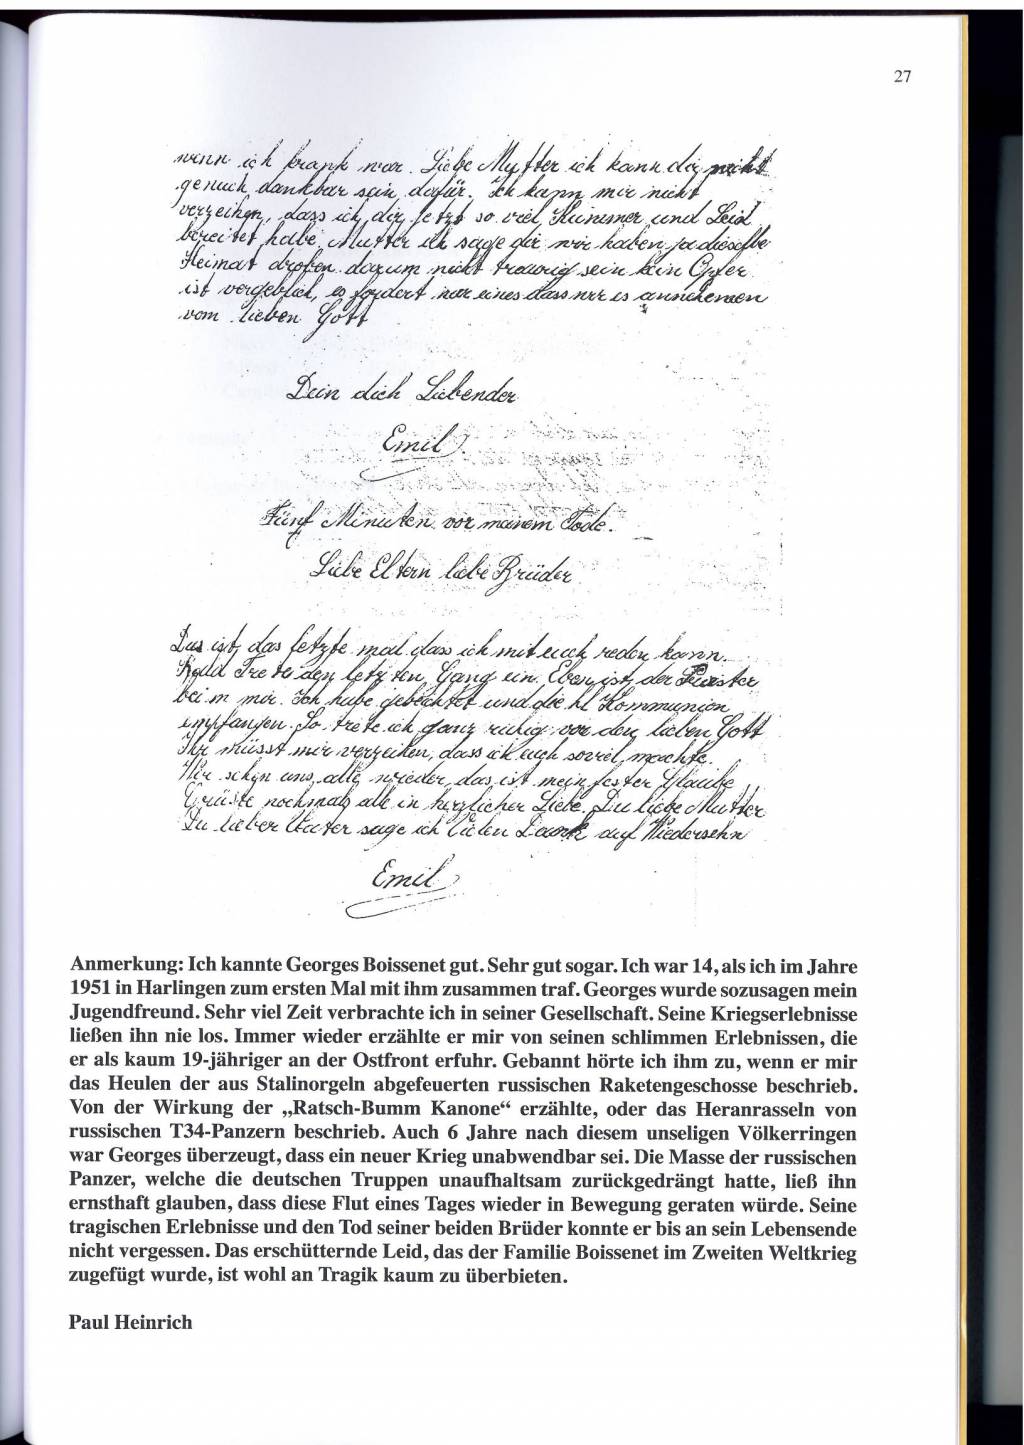 27
wenn ich krank war. Liebe Mutter ich kann dir nicht
genuch dankbar sein dafür. Ich kann mir nicht
verzeihen, dass ich dir jetzt so viel Kummer und Leid
bereitet habe. Mutter ich sage dir wir haben ja dieselbe
Heimat droben darum nicht traurig sein kein Opfer
ist vergeblich, es fordert nur eines dass wir es annehemen
vom lieben Gott
Dein dich Liebender
Emil
Fünf Minuten vor meinem Tode.
Liebe Eltern liebe Brüder
Das ist das letzte mal dass ich mit euch reden kann.
Bald Trete den letzten Gang ein. Eben ist der Priester
bei m mir. Ich habe gebechtet und die hl Kommunion
empfangen. So trete ich ganz ruhig vor den lieben Gott
Ihr müsst mir verzeihen, dass ich euch soviel machte.
Wir sehen uns alle wieder, das ist mein fester Glaube
Grüsse nochmals alle in herzlicher Liebe. Du liebe Mutter
Du lieber Vater sage ich Vielen Dank auf Wiedersehn
Emil
Anmerkung: Ich kannte Georges Boissenet gut. Sehr gut sogar. Ich war 14, als ich im Jahre
1951 in Harlingen zum ersten Mal mit ihm zusammen traf. Georges wurde sozusagen mein
Jugendfreund. Sehr viel Zeit verbrachte ich in seiner Gesellschaft. Seine Kriegserlebnisse
ließen ihn nie los. Immer wieder erzählte er mir von seinen schlimmen Erlebnissen, die
er als kaum 19-jähriger an der Ostfront erfuhr. Gebannt hörte ich ihm zu, wenn er mir
das Heulen der aus Stalinorgeln abgefeuerten russischen Raketengeschosse beschrieb.
Von der Wirkung der „Ratsch-Bumm Kanone“ erzählte, oder das Heranrasseln von
russischen T34-Panzern beschrieb. Auch 6 Jahre nach diesem unseligen Völkerringen
war Georges überzeugt, dass ein neuer Krieg unabwendbar sei. Die Masse der russischen
Panzer, welche die deutschen Truppen unaufhaltsam zurückgedrängt hatte, ließ ihn
ernsthaft glauben, dass diese Flut eines Tages wieder in Bewegung geraten würde. Seine
tragischen Erlebnisse und den Tod seiner beiden Brüder konnte er bis an sein Lebensende
nicht vergessen. Das erschütternde Leid, das der Familie Boissenet im Zweiten Weltkrieg
zugefügt wurde, ist wohl an Tragik kaum zu überbieten.
Paul Heinrich